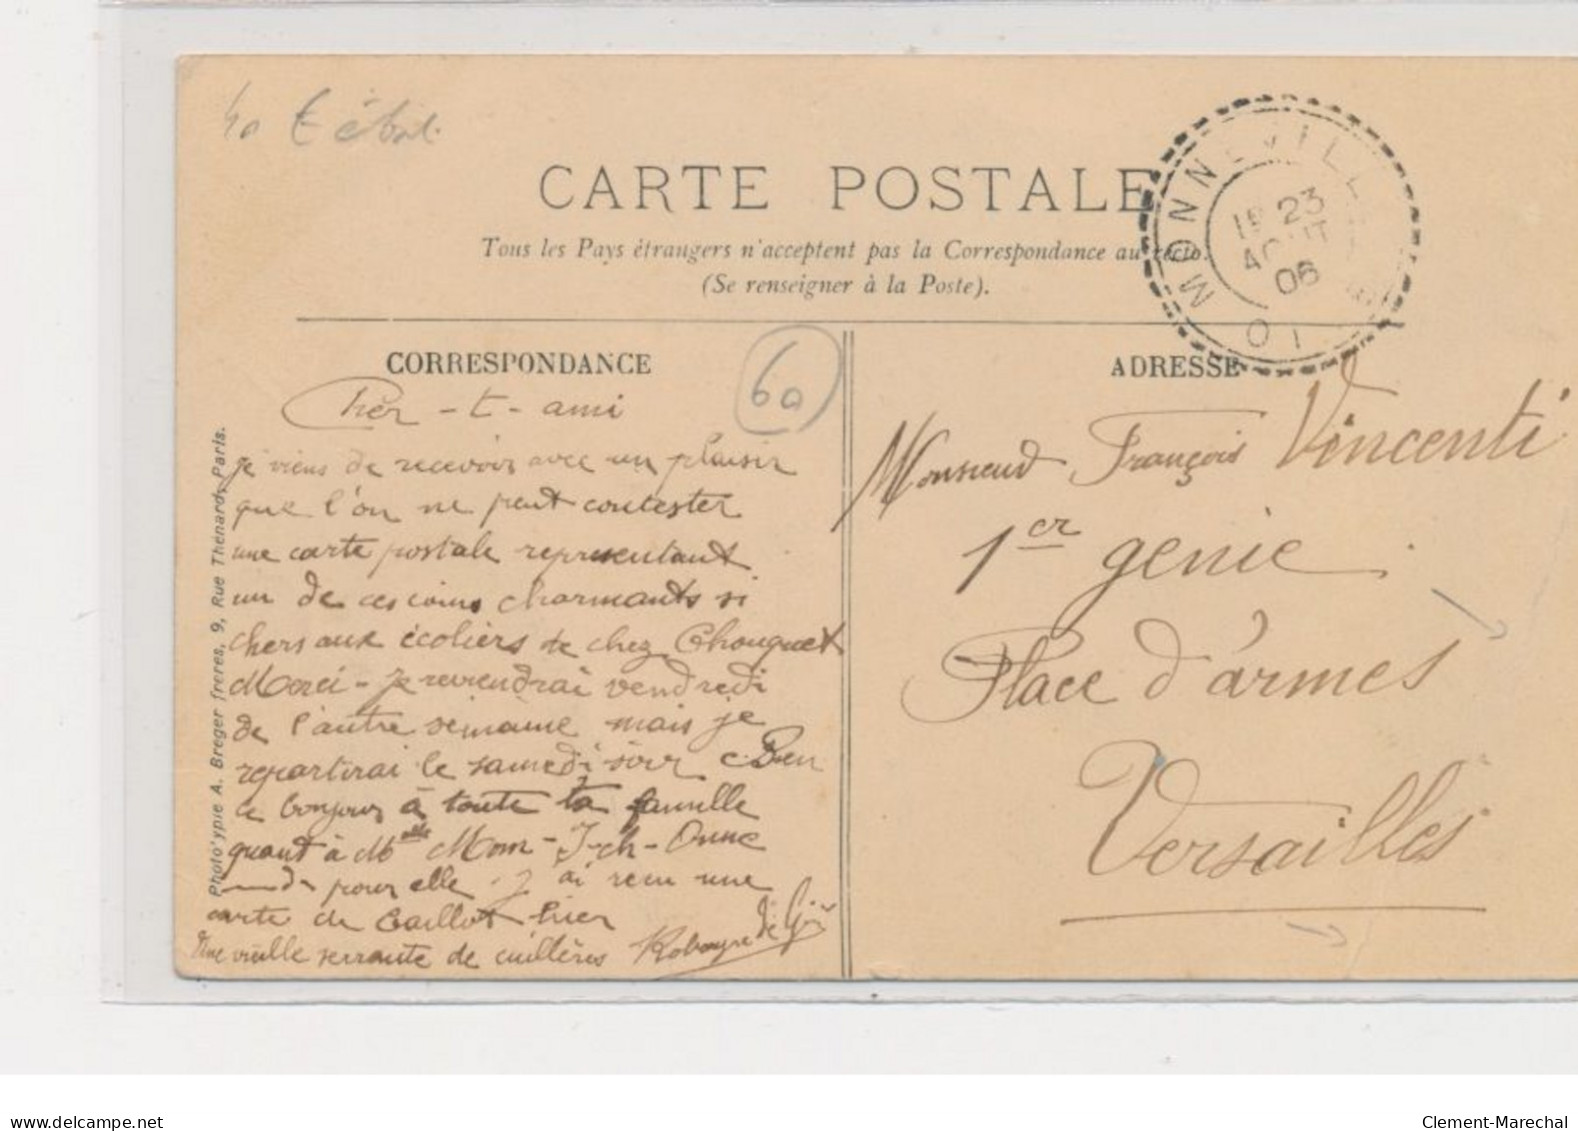 60 
CARTE POSTALE
Tous les Pays étrangers n'acceptent pas la Correspondance au recto.
(Se renseigner à la Poste).
MONNEVILLE
23
AOUT
06
CORRESPONDANCE
Cher-t-ami
je viens de recevoir avec un plaisir
que l'on ne peut contester
une carte postale representant
un de ces coins charmants si
chers aux écoliers de chez Chouquet
Merci - je reviendrai vendredi
de l'autre semaine mais je
repartirai le samedi soir Bien
le bonjour à toute ta famille
quant à Melle
pour elle. J'ai recu une
carte de Caillot hier
Une vieille serrante de cuillères
ADRESSE
Monsieur François Vincenti
1er genie
Place d'armes
Versailles
Phototypie A. Breger frères, 9, Rue Thenard, Paris.
www.delcampe.net
Clement-Marechal